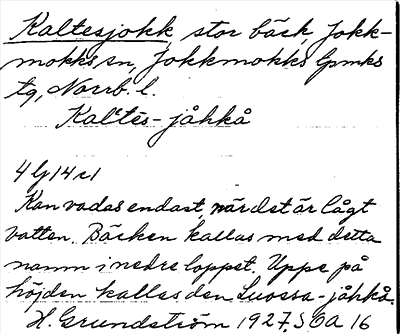 Kaltesjokk, stor bäck, Jokk-
mokks sn, Jokkmokks lpmks
tg, Norrb. l.
Kaltēs-jåhkå
4 G 14 c 1
Kan vadas endast, när det är lågt
vatten. Bäcken kallas med detta
namn i nedre loppet. Uppe på
höjden kallas den Luossa-jåhkå.
H. Grundström 1927, SOA 16